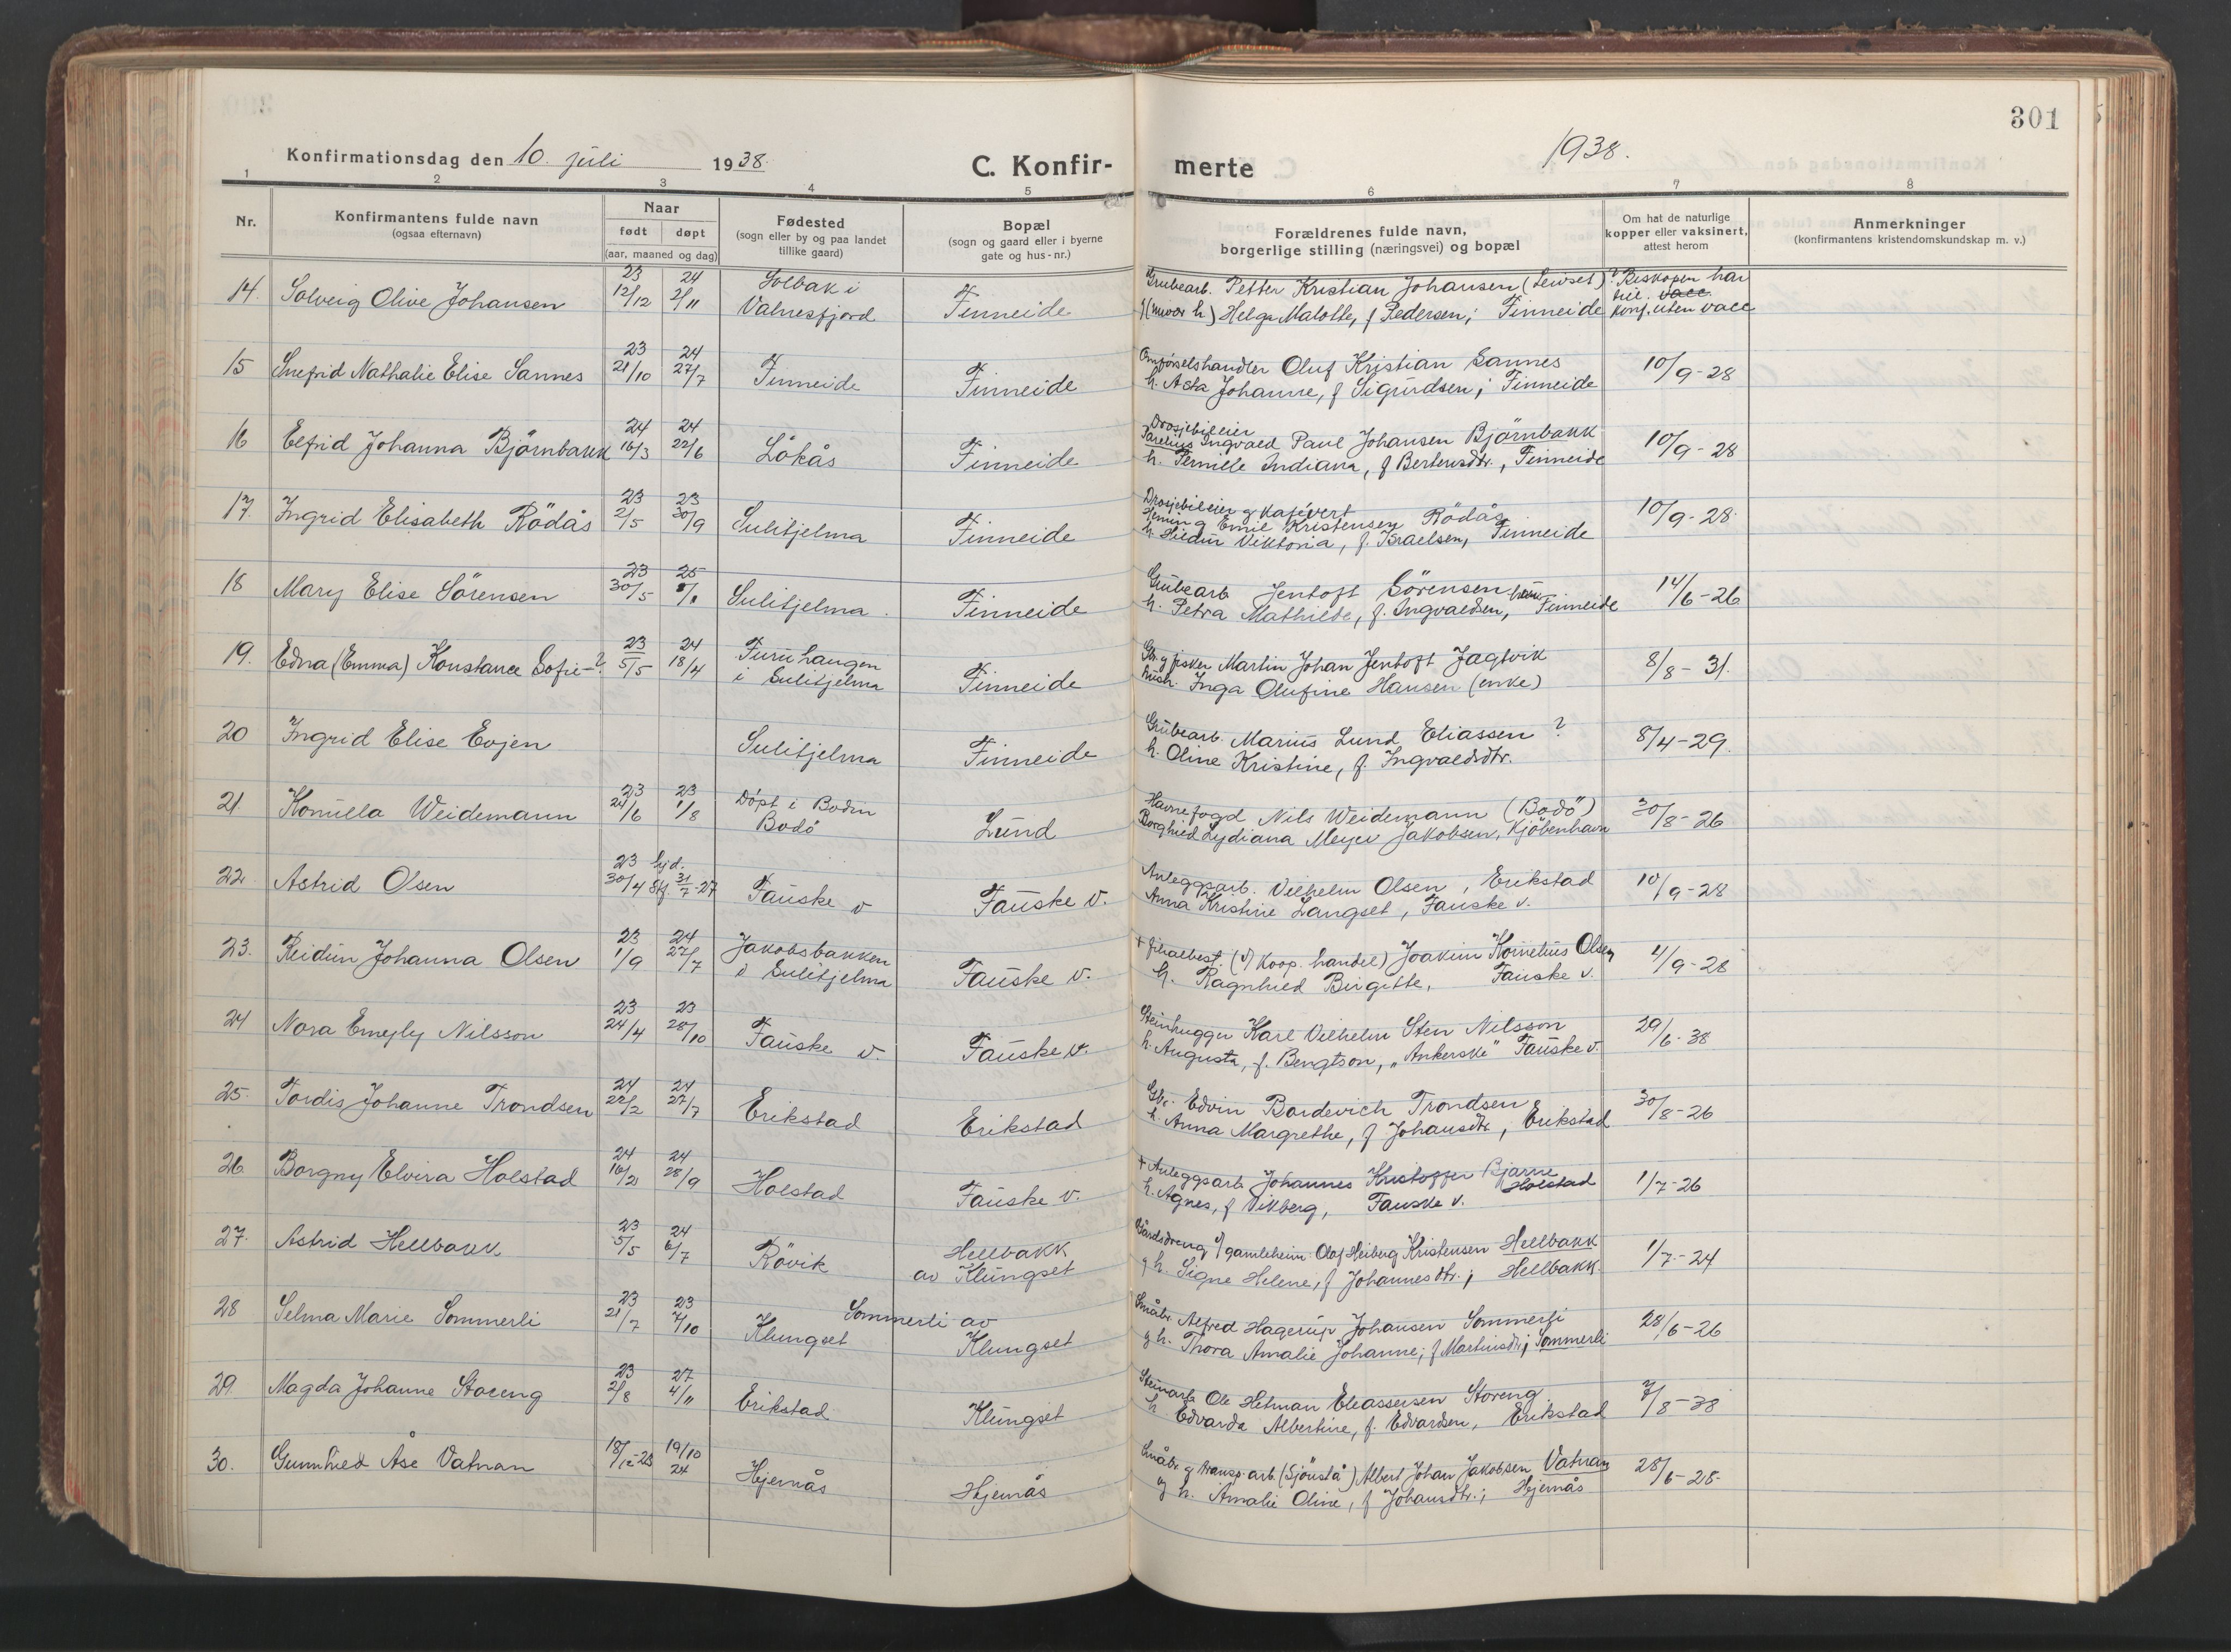 301
Konfirmationsdag den 10. juli 1938.
C. Konfirmerte
1938.
1 2 3 4 5 6 7 8
Nr.
Konfirmantens fulde navn
(ogsaa efternavn)
Naar
født døpt
(aar, maaned og dag)
Fødested
(sogn eller by og paa landet
tillike gaard)
Bopæl
(sogn og gaard eller i byerne
gate og hus-nr.)
Forældrenes fulde navn,
borgerlige stilling (næringsvei) og bopæl
Om hat de naturlige
kopper eller vaksinert,
attest herom
Anmerkninger
(konfirmantens kristendomskundskap m. v.)
14. Solveig Olive Johansen 23 12/12 24 2/11 Solbak i Valnesfjord Finneide
Grubearb. Petter Kristian Johansen
h) Helga Malotte, f Pedersen; Finneide
Biskopen har
till. vacc.
konf. uten vacc
15 Snefrid Nathalie Elise Sannes 23 21/10 24 27/7 Finneide Finneide
Oluf Kristian Sannes
h. Asta Johanne, f Sigurdsen; Finneide
10/9-28
16 Elfrid Johanna Björnbakk 24 16/3 24 22/6 Lökås Finneide
Drosjebileier
Parelius Ingvald Paul Johansen Björnbakk
h. Pernille Indiana, f Berteusdtr., Finneide
10/9-28
17. Ingrid Elisabeth Rödås 23 2/5 23 30/9 Sulitjelma Finneide
Drosjebileier g Kafévert
Heming Emil Kristensen Rödås
h. Hildur Viktoria, f. Israelsen, Finneide
10/9-28.
18 Mary Elise Sörensen 23 30/5 25 8/1 Sulitjelma. Finneide
Grubearb Jentoft Sörensen
h. Petra Mathilde, f. Ingvaldsen, Finneide
14/6-26
19. Edna (Emma) Konstance Sofie-? 23 5/5 24 18/4 Furuhaugen i Sulitjelma Finneide
Gbr. g fisker Martin Johan Jentoft Jagtvik
Inga Olufine Hansen (enke)
8/8-31.
20 Ingrid Elise Evjen Sulitjelma Finneide
Grubearb. Marius Lund Eliassen ?
h. Oline Kristine, f. Ingvaldsdtr.
8/4-29.
21. Kornella Weidemann 23 24/6 23 1/8 Döpt i Bodin Bodö Lund
Havnefogd Nils Weidemann (Bodö)
Borghild Lydiana Meyer Jakobsen, Kjöbenhavn
30/8-26
22 Astrid Olsen 23 30/4 hjd. Stf. 31/7-27 Fauske v Fauske v.
Anleggsarb. Vilhelm Olsen, Erikstad
Anna Kristine Langset, Fauske v.
10/9-28
23. Reidun Johanna Olsen 23 1/9 24 27/7 Jakobsbakken i Sulitjelma Fauske v.
+ filialbest. (v/ Koop. handel) Joakim Kornelius Olsen
h. Ragnhild Birgitte, Fauske v.
4/9-28
24 Nora Emyly Nilsson 23 24/4 23 28/10 Fauske v. Fauske v.
Steinhugger Karl Vilhelm Sten Nilsson
h. Augusta, f. Bengtson, "Ankerske" Fauske v.
29/6-38
25. Tordis Johanne Trondsen 24 22/2 24 27/7 Erikstad Erikstad
Gbr. Edvin Bardevich Trondsen
h. Anna Margrethe, f Johansdtr, Erikstad
30/8-26
26 Borgny Elvira Holstad 24 16/2 24 28/9 Holstad Fauske v.
+ Anleggsarb Johannes Kristoffer Bjarne Holstad
h. Agnes, f Vikberg, Fauske v.
1/7-26
27. Astrid Hellbakk 23 5/5 24 6/7 Rövik Hellbakk av Klungset
Gårdsdreng v/ gamleheim Olaf Heiberg Kristensen Hellbakk
g h. Signe Helene, f Johannesdtr.; Hellbakk.
1/7-24
28 Selma Marie Sommerli 23 21/7 23 7/10 Klungset Sommerli av Klungset
Småbr Alfred Hagerup Johansen Sommerli
g h. Thora Amalie Johanne; f Martinsdtr; Sommerli
28/6-26
29. Magda Johanne Storeng 23 2/8 27 4/11 Erikstad Klungset
Steinarb Ole Hetman Eleassersen Storeng
h Edvarda Albertine, f. Edvardsen, Erikstad
7/8-38
30. Gunnhild Åse Vatnan 18/12-23 19/10 24 Hjemås Hjemås
Småbr g transp. arb. (Sjönstå) Albert Johan Jakobsen Vatnan
g h. Amalie Oline, f Johansdtr.; Hjemås
28/6-28.